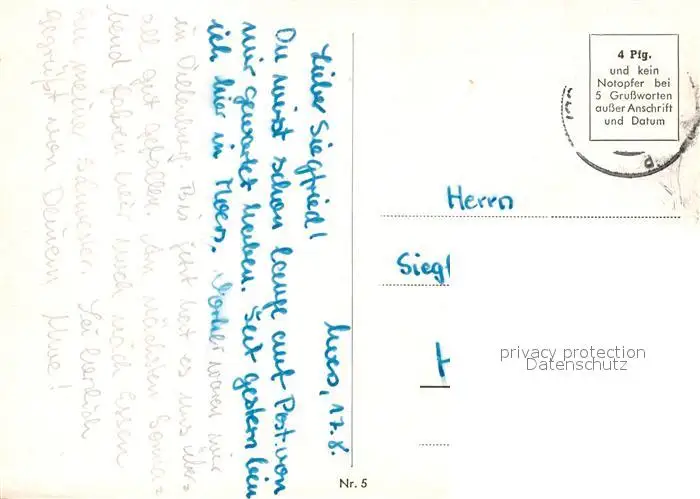 Moers, 17.8.
Lieber Siegfried!
Du wirst schon lange auf Post von
mir gewartet haben. Seit gestern bin
ich hier in Moers. Vorher waren wir
in Dillenburg. Bis jetzt hat es uns über=
all gut gefallen. Am nächsten Sonna=
bend fahren wir noch nach Essen
zu meiner Schwester. Sei herzlich
gegrüßt von Deinem
4 Pfg.
und kein
Notopfer bei
5 Grußworten
außer Anschrift
und Datum
Herrn
Siegf
privacy protection
Datenschutz
Nr. 5